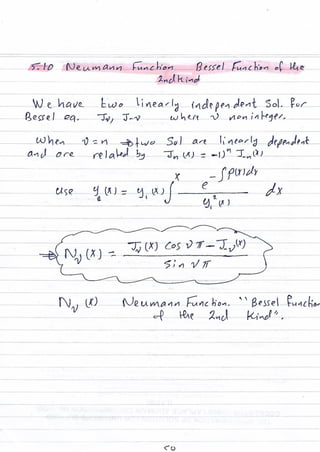 5.10 Neumann Function Bessel Function of the
2nd Kind
We have two linearly independent Sol. for
Bessel eq. Jν, J-ν where ν noninteger.
when ν=n ⇒ two Sol are linearly dependent
and are related by Jn(x) = -1)^n Jn(x)
use y2(x) = y1(x) ∫^x e^(-∫P(x)dx) / y1^2(x) dx
⇒ Nν(x) = (Jν(x) cos νπ - J-ν(x)) / sin νπ
Nν(x) Neumann Function. "Bessel Function
of the 2nd Kind".
50